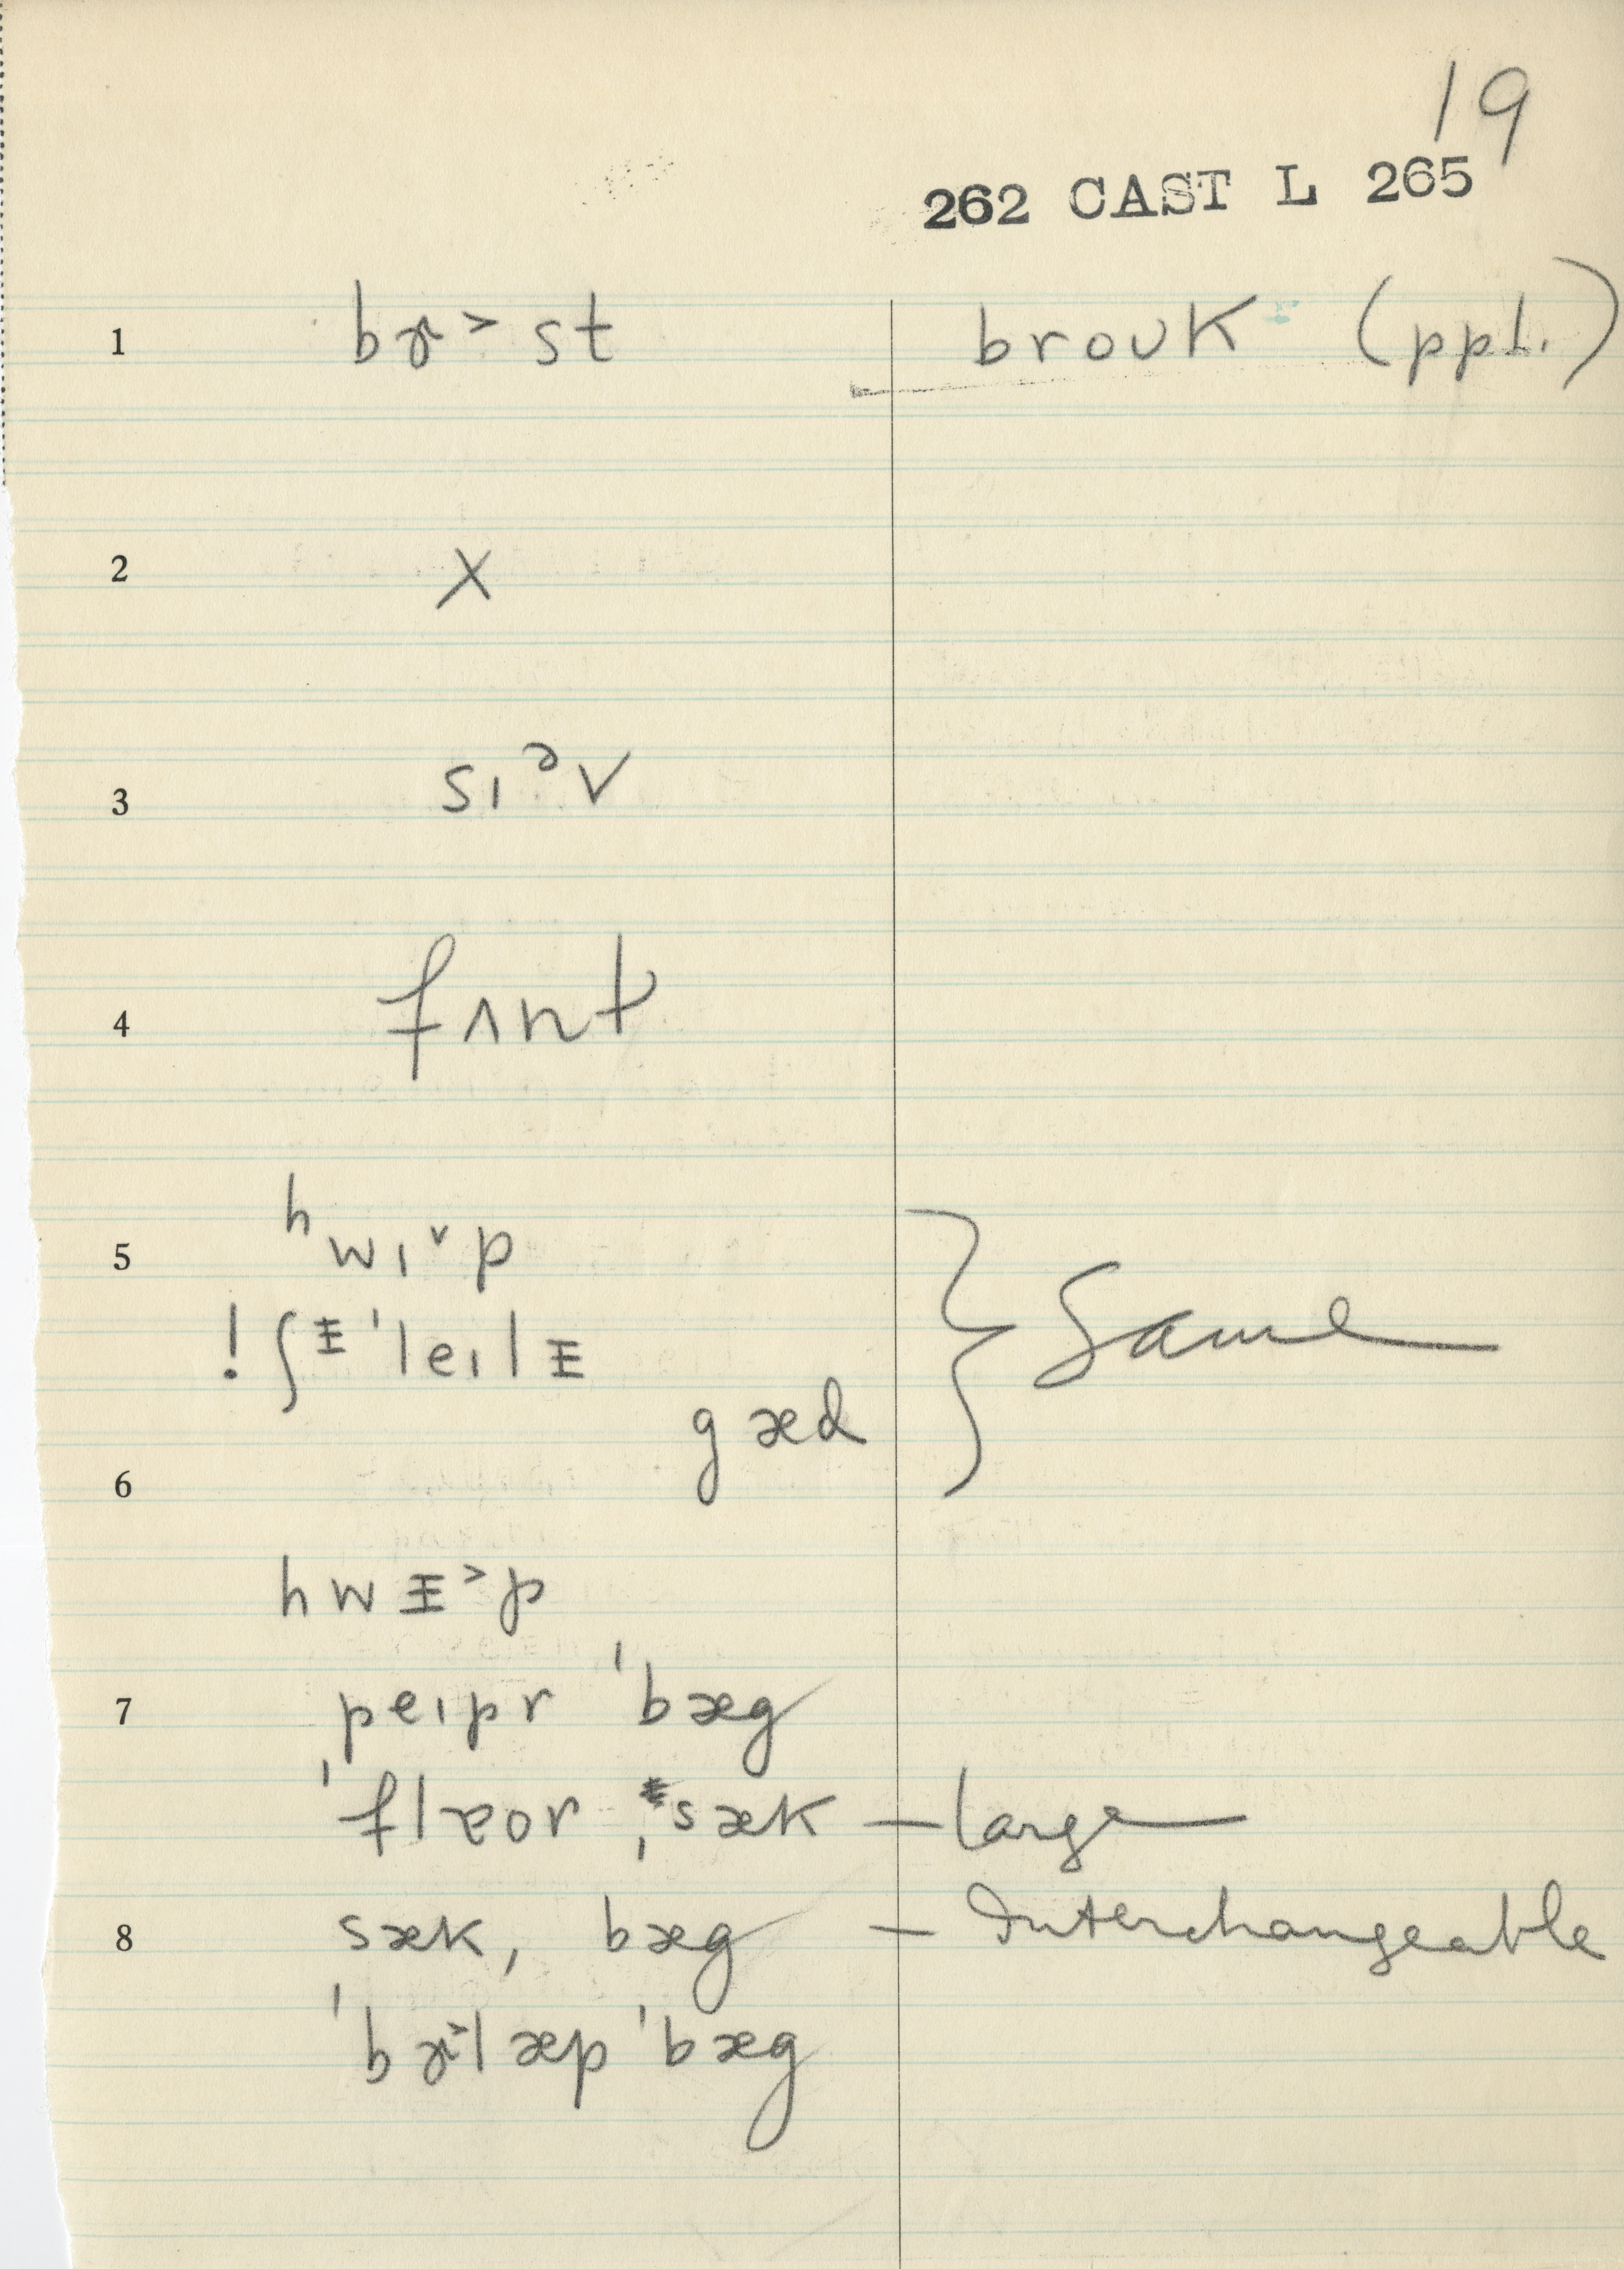 19
262 CAST L 265
1 bɚ˃st broʊk (ppl.)
2 X
3 sɪᵊv
4 fʌnt
5 ʰwɪ˅p
! ʃᵻˈleɪlᵻ } Same
gæd
6
hwᵻ˃p
7 peɪpr ˈbæg
ˈflɐor ˌsæk — large
8 sæk, bæg — Interchangeable
ˈbɚlæp ˈbæg